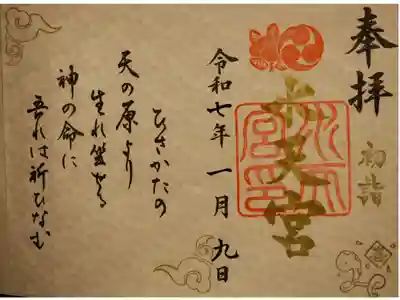 奉拝
初詣
水天宮
水天宮印
令和七年 一月 九日
ひさかたの
天の原より
生れ坐せる
神の命に
吾れは祈ひなむ